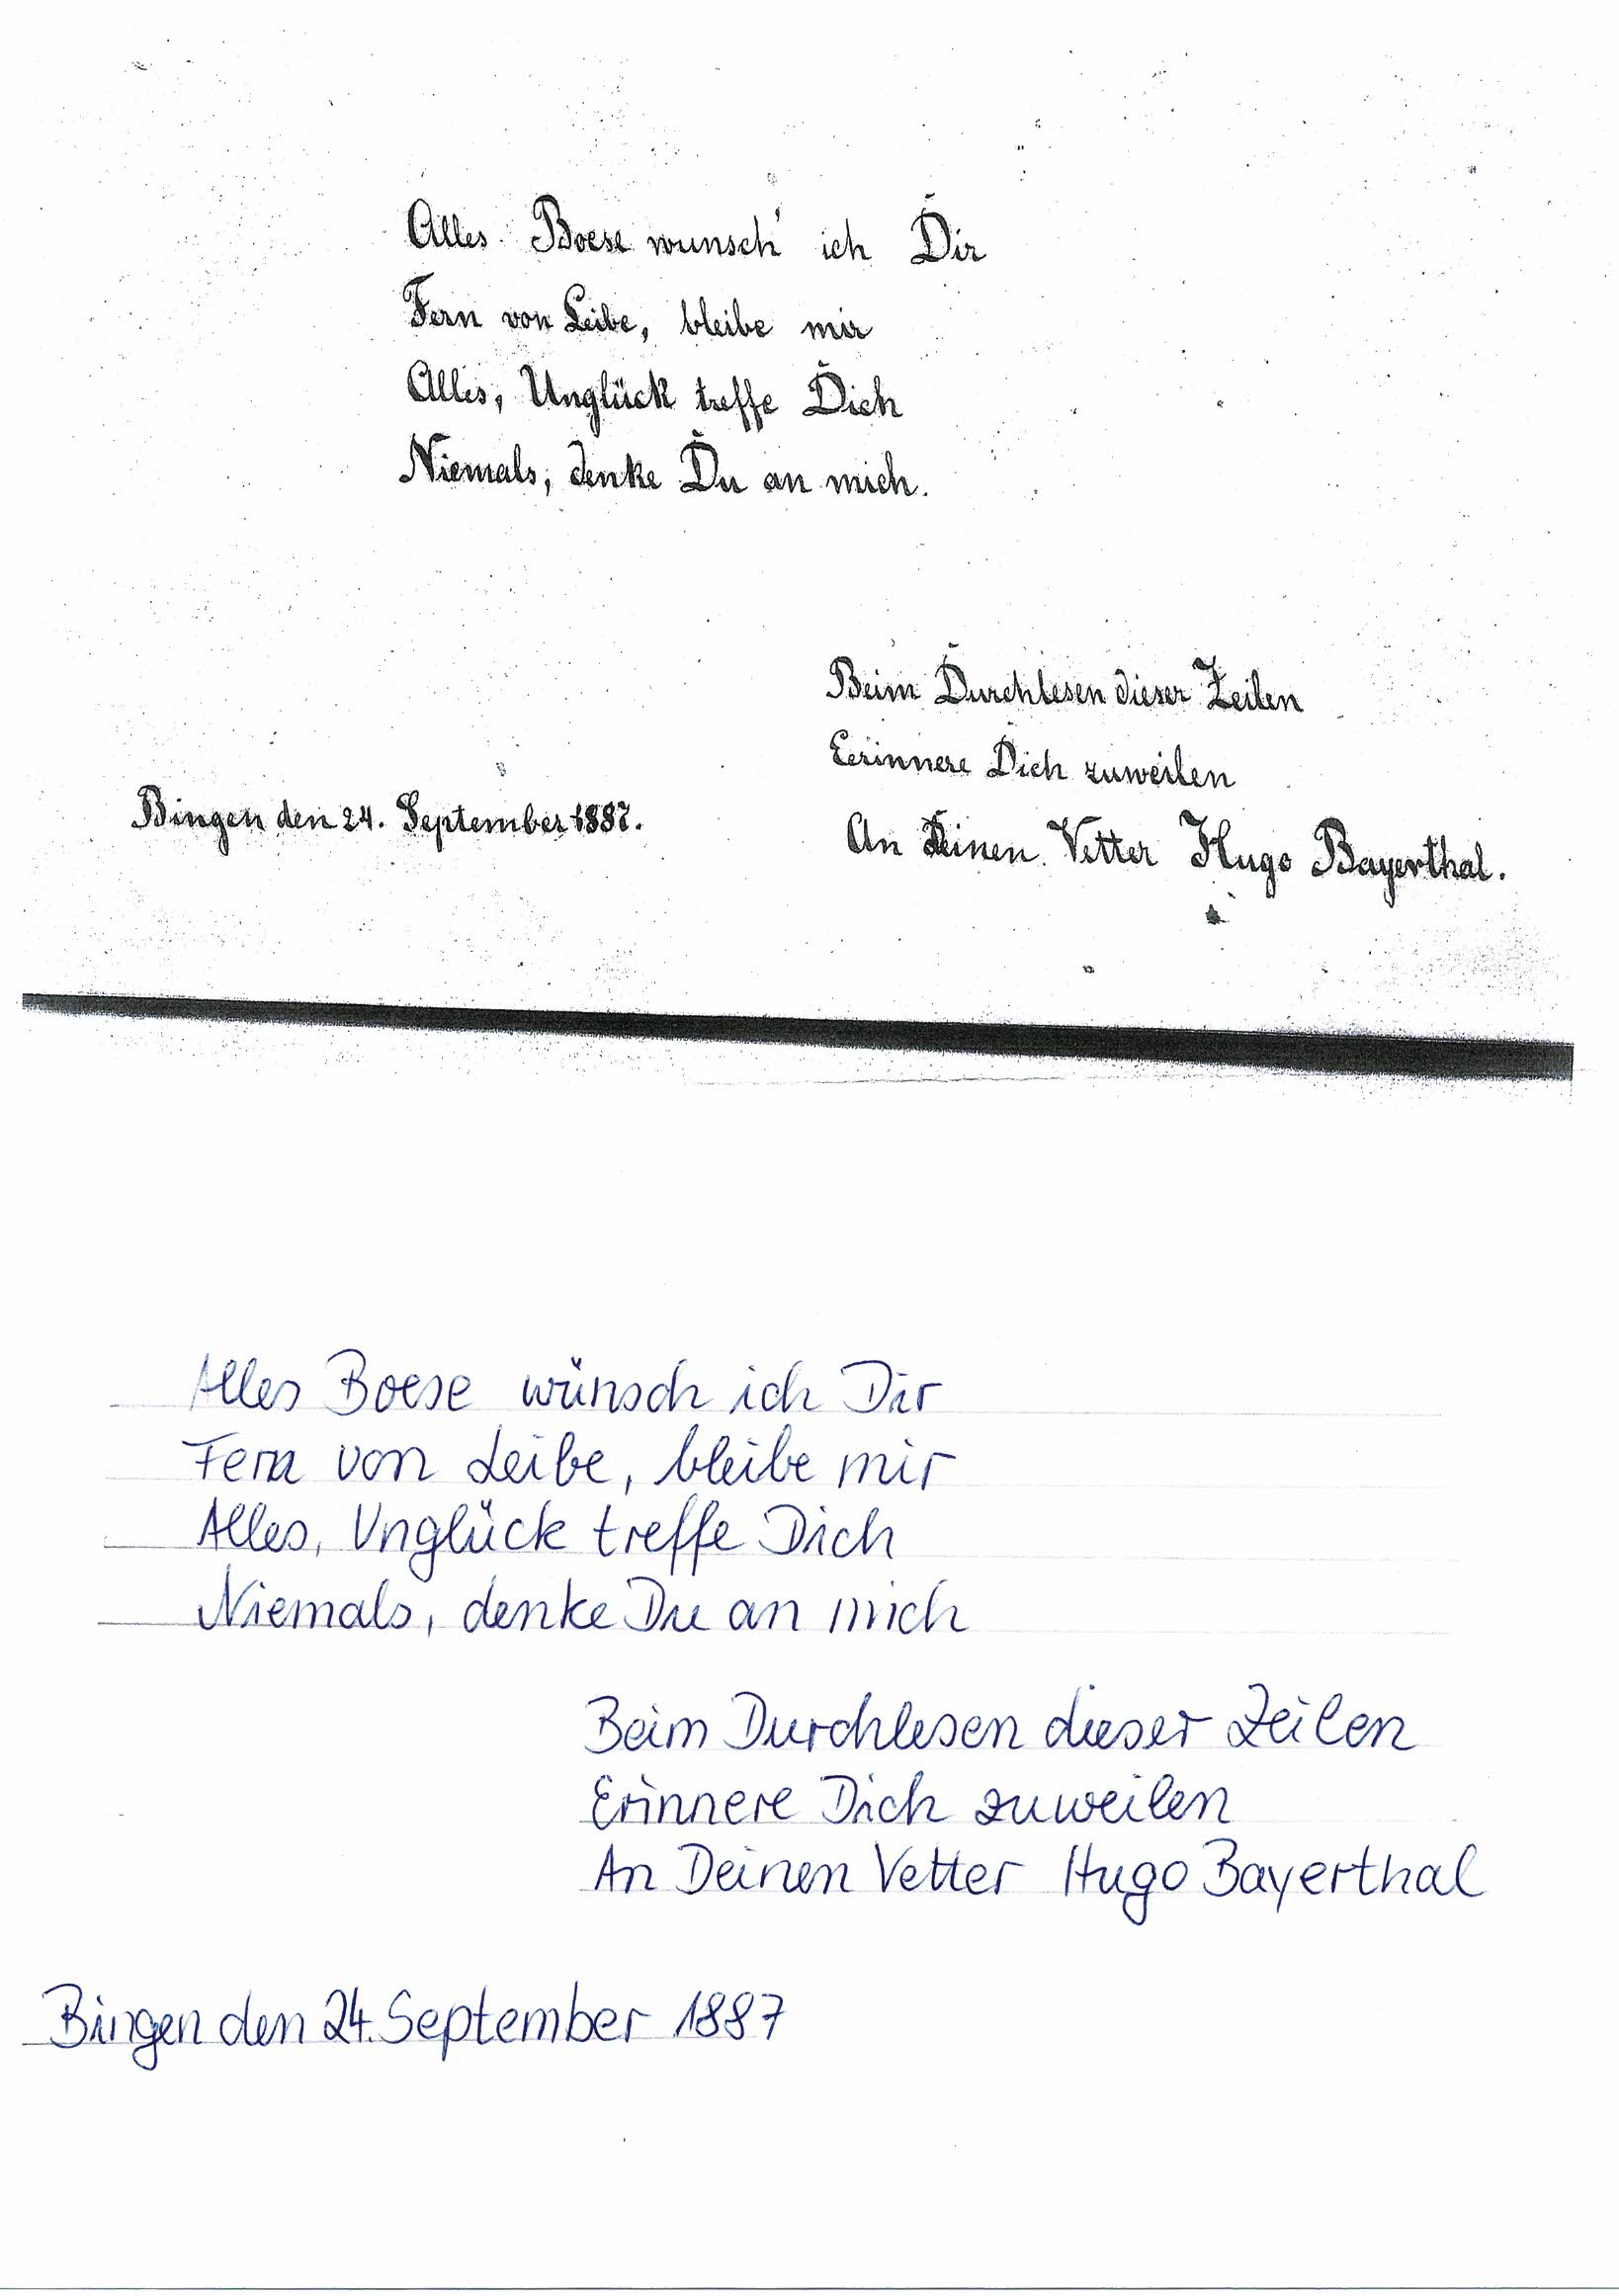 Alles Boese wunsch' ich Dir
Fern von Leibe, bleibe mir
Alles, Unglück treffe Dich
Niemals, denke Du an mich.
Beim Durchlesen dieser Zeilen
Eerinnere Dich zuweilen
Bingen den 24. September 1887.
An Deinen Vetter Hugo Bayerthal.
Alles Boese wünsch ich Dir
Fern von Leibe, bleibe mir
Alles, Unglück treffe Dich
Niemals, denke Du an mich
Beim Durchlesen dieser Zeilen
Erinnere Dich zuweilen
An Deinen Vetter Hugo Bayerthal
Bingen den 24. September 1887